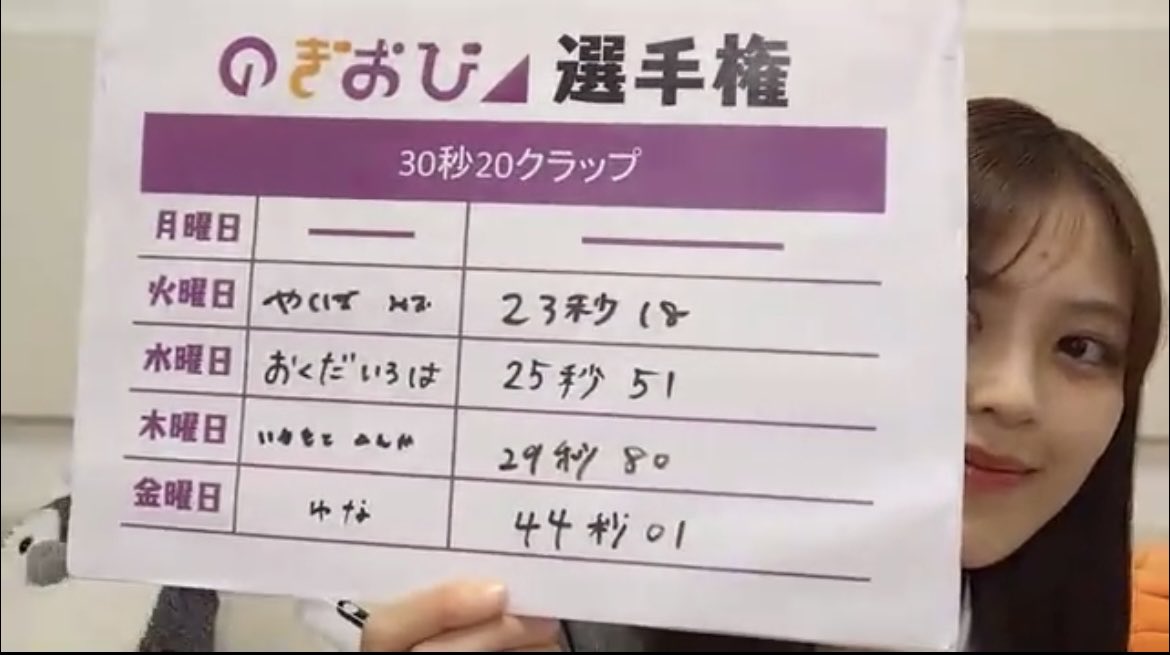 のぎおび 選手権
30秒20クラップ
月曜日 — —
火曜日 やくぼ みお 23秒18
水曜日 おくだいろは 25秒51
木曜日 いわもと れんか 29秒80
金曜日 ゆな 44秒01